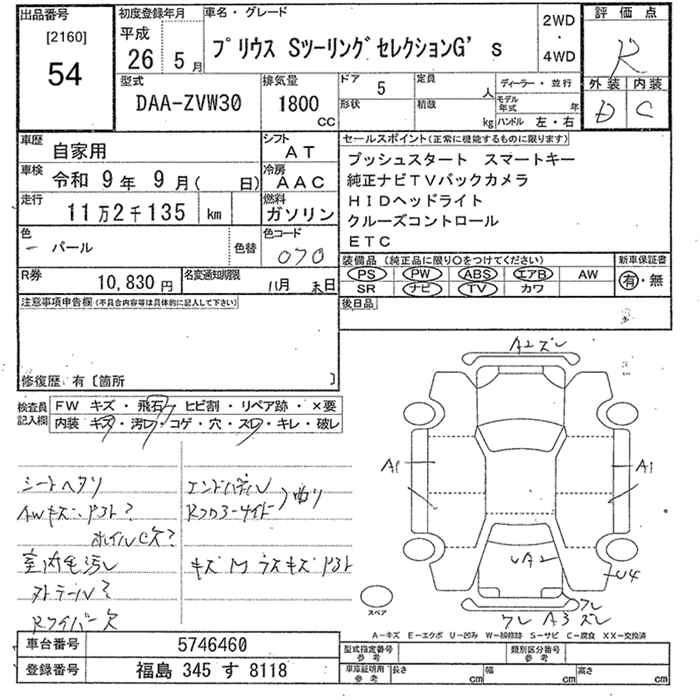 出品番号
[2160]
54
初度登録年月
平成
26 5月
車名・グレード
プリウス SツーリングセレクションG's
2WD
・
4WD
評価点
R
外装 内装
D C
型式
DAA-ZVW30
排気量
1800
CC
ドア 5
形状
定員
人
積載
kg
ディーラー・並行
モデル年式 年
ハンドル 左・右
車歴
自家用
シフト
AT
車検
令和 9年 9月( 日)
冷房
AAC
走行
11万2千135 km
燃料
ガソリン
色
パール
色替
色コード
070
R券
10,830円
名変通知期限
11月 末日
セールスポイント(正常に機能するものに限ります)
プッシュスタート スマートキー
純正ナビTVバックカメラ
HIDヘッドライト
クルーズコントロール
ETC
装備品(純正品に限り○をつけてください)
PS PW ABS エアB AW
SR ナビ TV カワ
新車保証書
有・無
後日品
注意事項申告欄(不具合内容等は具体的に記入して下さい)
修復歴 有〔箇所 〕
検査員記入欄
FW キズ・飛石・ヒビ割・リペア跡・×要
内装 キズ・汚レ・コゲ・穴・スレ・キレ・破レ
シートヘタリ
AWキズ
室内毛汚レ
Rワイパー欠
キズM ウスキズ
A2ズレ
A1
A1
A2
U4
ワレ
ワレ A3 ズレ
スペア
A-キズ E-エクボ U-凹み W-補修跡 S-サビ C-腐食 XX-交換済
車台番号 5746460
登録番号 福島 345 す 8118
型式指定番号 参考
類別区分番号 参考
車庫証明用 参考
長さ cm
幅 cm
高さ cm